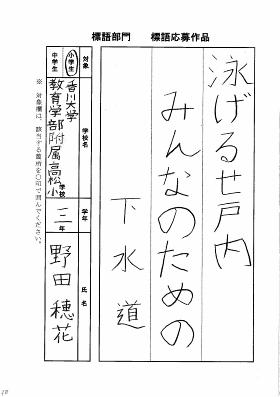 標語部門　標語応募作品
泳げるせ戸内
みんなのための
下水道
対象
小学生
中学生
学校名
香川大学
教育学部附属高松小
学校
学年
三年
氏名
野田穂花
※対象欄は、該当する箇所を○印で囲んでください。